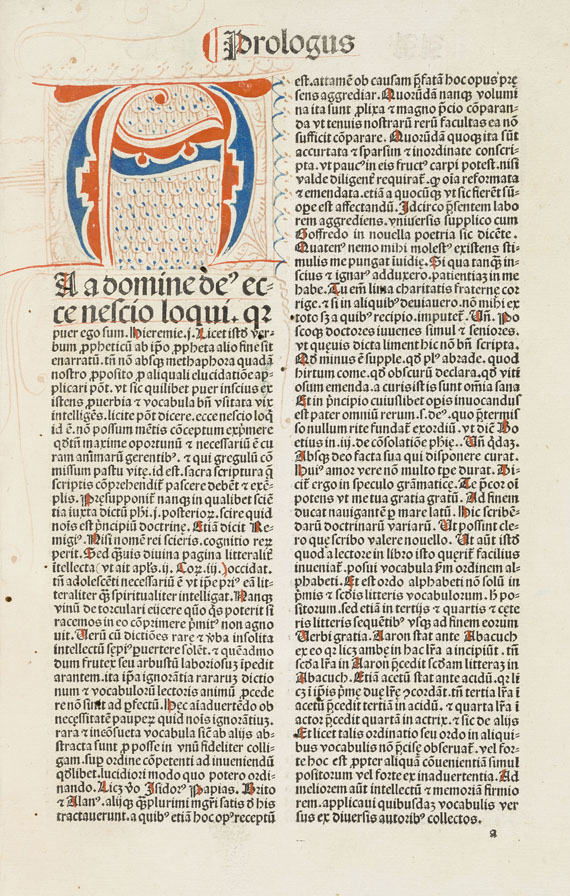 Prologus
A a a domine deꝰ ec-
ce nescio loqui. qꝛ
puer ego sum. Hieremie. j. Licet istđ ver-
bum ꝓpheticū ab ipō ꝓpheta alio fine sit
enarratū. tn̄ nō absqꝫ methaphora quadā
nostro ꝓposito ꝓ aliquali elucidatiōe ap-
plicari pōt. vt sic quilibet puer inscius ex
istens ꝓuerbia ⁊ vocabula bn̄ vsitata vix
intelligēs. licite pōt dicere. ecce nescio loq̄
id ē. nō possum mētis cōceptum exp̄mere
qđ tn̄ maxime oportunū ⁊ necessariū ē cu
ram animarū gerentibꝰ. ⁊ qui gregulū cō
missum pastu vite. id est. sacra scriptura q̄
scriptis cōprehendit̄ pascere debēt ⁊ exē-
plis. Presupponit̄ nanqꝫ in qualibet sciē
tia iuxta dictū phi. j. posterioꝝ. scire quid
nois est p̄ncipiū doctrine. Etiā dicit Re-
migiꝰ. Nisi nomē rei scieris. cognitio rerꝫ
perit. Sed q̄uis diuina pagina litteralit̄
itellecta (vt ait apl̄s. ij. Coꝝ. iij.) occidat.
tn̄ adolescēti necessariū ē vt ip̄e pri. eā lit-
teraliter q̄ spiritualiter intelligat. Nanqꝫ
vinū de torculari eijcere quō q̄s poterit si
racemos in eo cōprimere p̄mit̄ non agno
uit. Verū cū dictiōes rare ⁊ v̄ba insolita
intellectū sepiꝰ ꝓuertere solēt. ⁊ quēadmo
dum frutex seu arbustū laboriosuꝫ ipedit
arantem. ita ip̄a ignorātia rararuꝫ dictio
num ⁊ vocabuloꝝ lectoris animū ꝓcede
re nō sinit ad ꝓfectū. Hec aiaduertēdo ob
necessitatē pauperꝫ quid nois ignorātiuꝫ.
rara ⁊ incōsueta vocabula sic̄ ab alijs ab-
stracta sunt ꝓ posse in vnū fideliter colli-
gam. sup̄ ordine cōpetenti ad inueniendū
qđlibet. lucidiori modo quo potero ordi-
nando. Licꝫ v̄o Isidorꝰ Papias. Brito
⁊ Alanꝰ. alijqꝫ q̄plurimi mgr̄i satis đ his
tractauerunt. a quibꝰ etiā hoc opꝰ receptū
est. attamē ob causam p̄fatā hoc opus prę
sens aggrediar. Quorūdā nanqꝫ volumi
na ita sunt ꝓlixa ⁊ magno p̄cio cōparan-
da vt tenuis nostrarū rerū facultas ea nō
sufficit cōparare. Quorūdā quoqꝫ ita sūt
accurtata ⁊ sparsim ⁊ inordinate conscri-
pta. vt paucꝰ in eis fructꝰ carpi potest. nisi
valde diligent̄ requirat̄. qꝛ oīa reformata
⁊ emendata. etiā a quocūqꝫ vt sic fierēt sū-
ope est affectandū. Idcirco p̄sentem labo
rem aggrediens. vniuersis supplico cum
Goffredo in nouella poetria sic dicēte.
Quatenꝰ nemo mihi molestꝰ existens sti-
mulis me pungat iuuidię. Si qua tanqꝫ in-
scius ⁊ ignarꝰ adduxero. patientiaꝫ in me
habe. Tu em̄ lima charitatis fraterne cor
rige. ⁊ si in aliquibꝰ deuiauero. nō mihi ex
toto sꝫ a quibꝰ recipio. imputet̄. Un̄. Po
scoqꝫ doctores iuuenes simul ⁊ seniores.
vt quęuis dicta liment hic nō bn̄ scripta.
Qđ minus ē supple. qđ plꝰ abrade. quod
hirtum come. qđ obscurū declara. qđ vitī
osum emenda. a curis istis sunt omīa sana
Et in p̄ncipio cuiuslibet oꝑis inuocandus
est pater omniū rerum. s. deꝰ. quo p̄termis
so nullum rite fundat̄ exordiū. vt dic̄ Bo
etius in. iij. de cōsolatiōe phie. Un̄ q̄daꝫ.
Absqꝫ deo facta sua qui disponere curat.
Huiꝰ amor vere nō multo tp̄e durat. Di-
cit̄ ergo in speculo grāmatice. Te p̄cor oī
potens vt me tua gratia gratū. Ad finem
ducat nauigantē ꝑ mare latū. Hic scribē-
darū doctrinarū variarū. Ut possint cle-
ro que scribo valere nouello. Ut aūt istđ
quod a lectore in libro isto querit̄ facilius
inueniat̄. posui vocabula ꝑm ordinem al-
phabeti. Et est ordo alphabeti nō solū in
p̄mis ⁊ scdis litteris vocabulorum. h̄ po-
sitorum. sed etiā in tertijs ⁊ quartis ⁊ cęte
ris litteris sequētibꝰ vsqꝫ ad finem eorum
Verbi gratia. Aaron stat ante Abacuch
ex eo qꝛ licꝫ ambę in hac lr̄a a incipiūt. tn̄
scđa lr̄a in Aaron p̄cedit scđam litteraꝫ in
Abacuch. Etiā acetū stat ante acidū. qꝛ li
cꝫ i ip̄is p̄me due lr̄ę ꝯcordāt. tn̄ tertia lr̄a i
acetū p̄cedit tertiā in acidū. ⁊ quarta lr̄a i
actor p̄cedit quartā in actrix. ⁊ sic de alijs
Et licet talis ordinatio seu ordo in aliqui-
bus vocabulis nō p̄cise obseruat̄. vel for-
te hoc est ꝓpter aliquā cōuenientiā simul
positorum vel forte ex inaduertentia. Ad
meliorem aūt intellectū ⁊ memoriā firmio
rem. applicaui quibusdaꝫ vocabulis ver
sus ex diuersis autoribꝰ collectos.
a